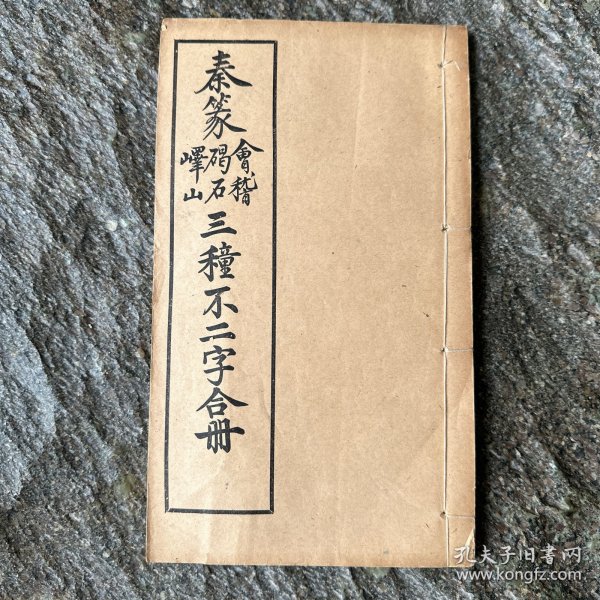 秦篆會稽碣石嶧山三種不二字合冊
孔夫子旧书网
www.kongfz.com